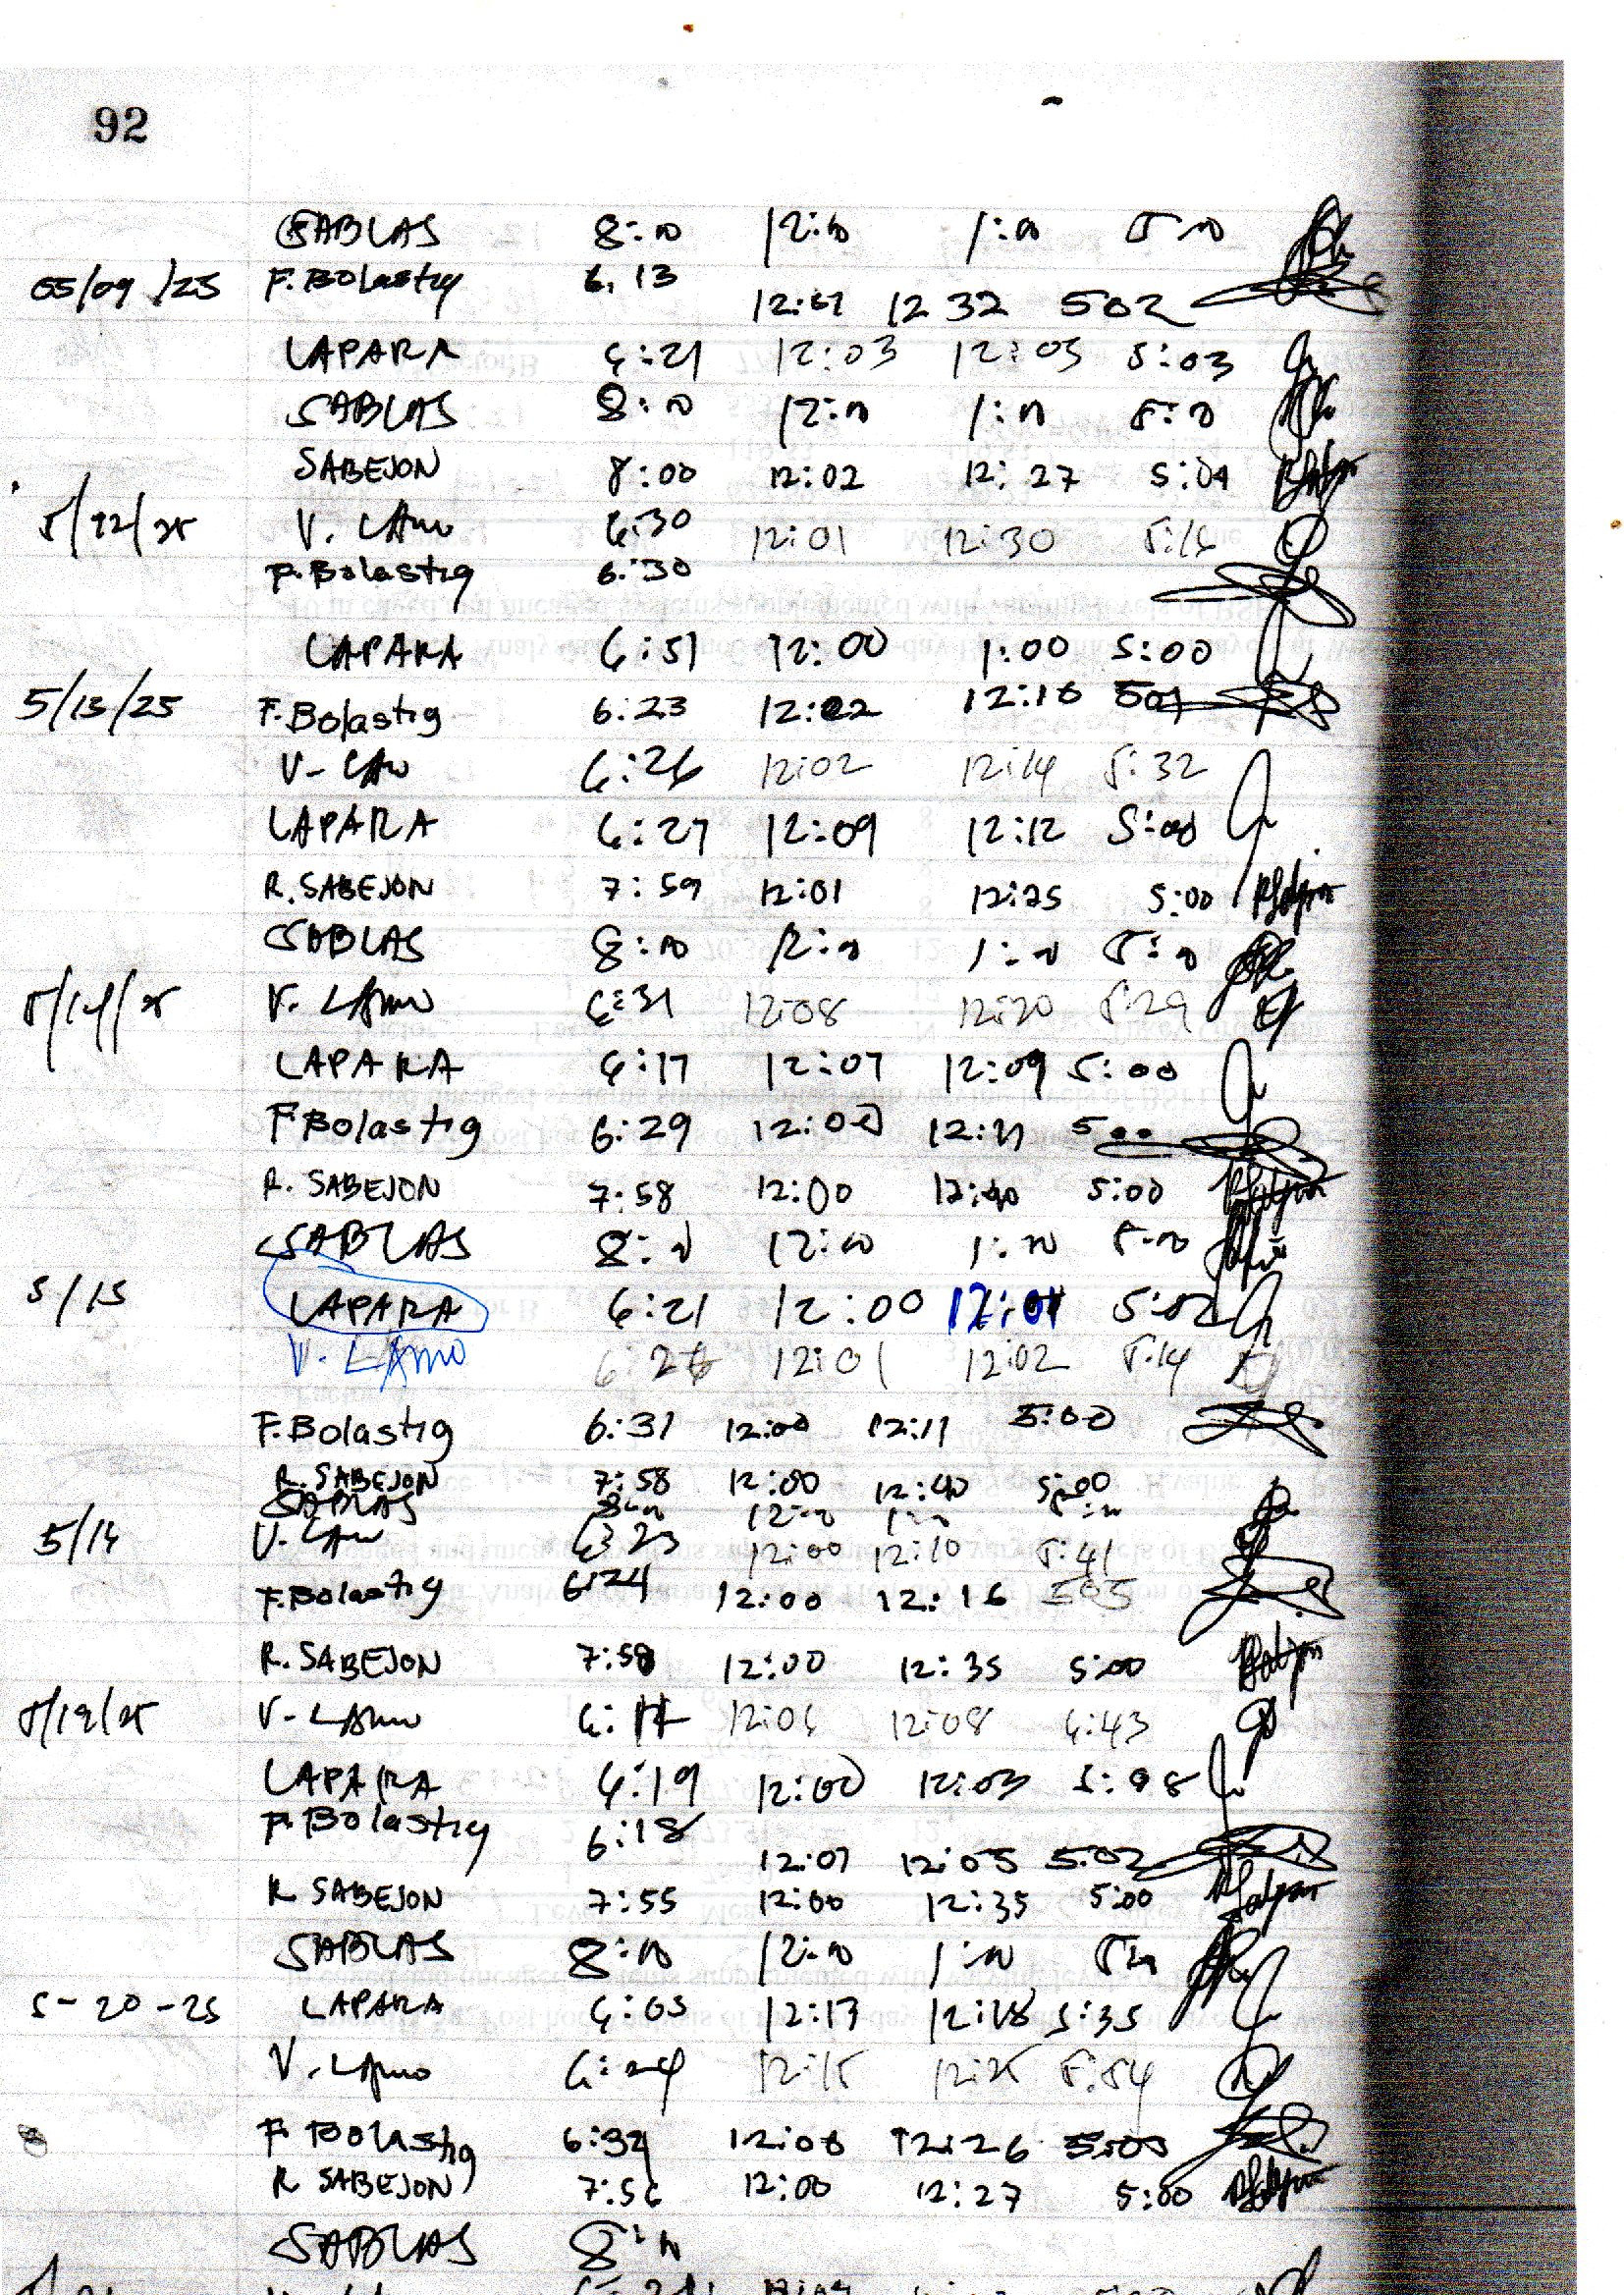 92
SABLAS 8:00 12:00 1:00 5:00
05/09/25 F. Bolastig 6:13 12:07 12 32 502
LAPARA 6:21 12:03 12:05 5:03
SABLAS 8:00 12:00 1:00 5:00
SABEJON 8:00 12:02 12:27 5:04
5/12/25 V. LAmo 6:30 12:01 12:30 5:14
F. Bolastig 6:30
LAPARA 6:51 12:00 1:00 5:00
5/13/25 F. Bolastig 6:23 12:02 12:10 501
V- LAmo 6:26 12:02 12:14 5:32
LAPARA 6:27 12:09 12:12 5:00
R. SABEJON 7:59 12:01 12:25 5:00
SABLAS 8:00 12:00 1:00 5:00
5/14/25 V. LAmo 6:31 12:08 12:20 5:29
LAPARA 6:17 12:07 12:09 5:00
F Bolastig 6:29 12:00 12:21 500
R. SABEJON 7:58 12:00 12:40 5:00
SABLAS 8:00 12:00 1:00 5:00
5/15 LAPARA 6:21 12:00 12:01 5:02
V. LAmo 6:26 12:01 12:02 5:14
F. Bolastig 6:31 12:00 12:11 5:00
R. SABEJON 7:58 12:00 12:40 5:00
SABLAS 8:00 12:00 1:00 5:00
5/16 V. LAmo 6:23 12:00 12:10 5:41
F. Bolastig 6:24 12:00 12:16 505
R. SABEJON 7:58 12:00 12:35 5:00
5/19/25 V- LAmo 6:17 12:06 12:08 6:43
LAPARA 6:19 12:00 12:03 5:08
F. Bolastig 6:18 12:07 12:05 5:02
R SABEJON 7:55 12:00 12:35 5:00
SABLAS 8:00 12:00 1:00
5-20-25 LAPARA 6:05 12:17 12:18 5:35
V. LAmo 6:24 12:15 12:25 5:54
F Bolastig 6:32 12:06 12:26 5:05
R SABEJON 7:56 12:00 12:27 5:00
SABLAS 8:00